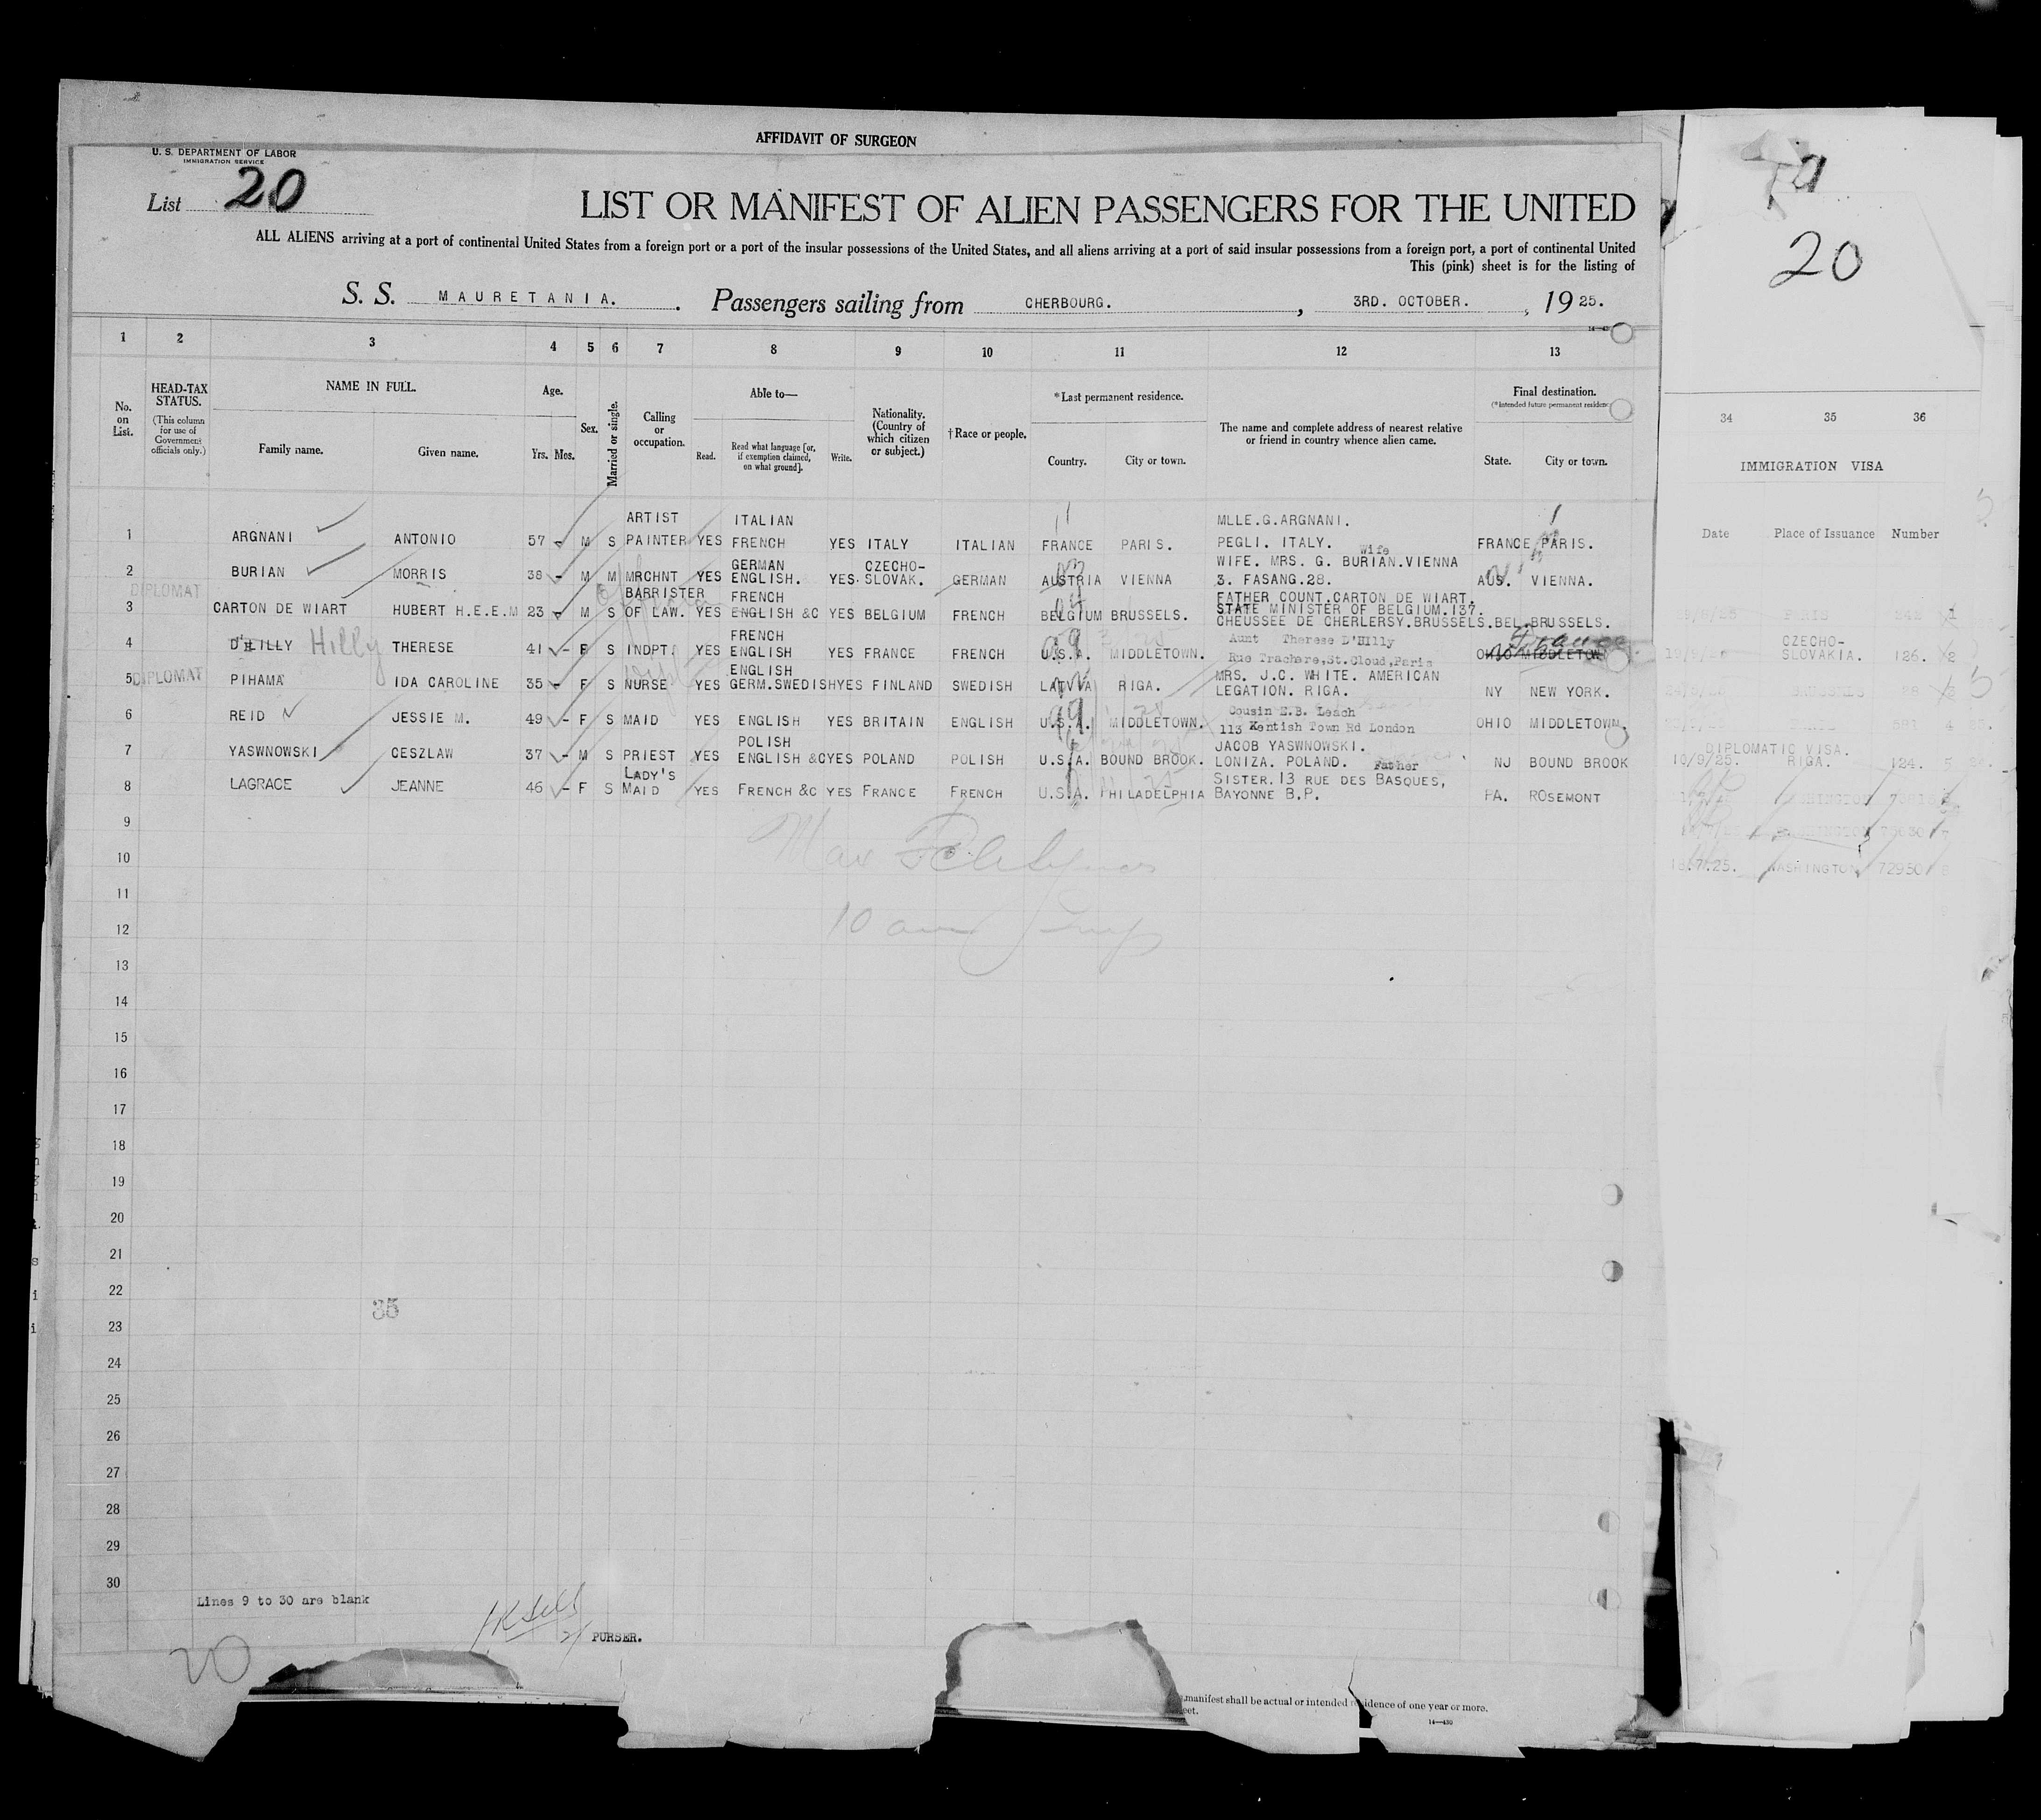 AFFIDAVIT OF SURGEON
U. S. DEPARTMENT OF LABOR
IMMIGRATION SERVICE
List 20
LIST OR MANIFEST OF ALIEN PASSENGERS FOR THE UNITED
ALL ALIENS arriving at a port of continental United States from a foreign port or a port of the insular possessions of the United States, and all aliens arriving at a port of said insular possessions from a foreign port, a port of continental United
This (pink) sheet is for the listing of
S. S. MAURETANIA. Passengers sailing from CHERBOURG. , 3RD. OCTOBER. , 1925.
20
1 2 3 4 5 6 7 8 9 10 11 12 13
34 35 36
No. on List.
HEAD-TAX STATUS.
(This column for use of Government officials only.)
NAME IN FULL.
Family name. Given name.
Age.
Yrs. Mos.
Sex.
Married or single.
Calling or occupation.
Able to—
Read. Read what language [or, if exemption claimed, on what ground]. Write.
Nationality. (Country of which citizen or subject.)
†Race or people.
*Last permanent residence.
Country. City or town.
The name and complete address of nearest relative or friend in country whence alien came.
Final destination.
(*Intended future permanent residence)
State. City or town.
IMMIGRATION VISA
Date Place of Issuance Number
ARTIST ITALIAN MLLE.G.ARGNANI.
1 ARGNANI ANTONIO 57 M S PAINTER YES FRENCH YES ITALY ITALIAN FRANCE PARIS. PEGLI. ITALY. FRANCE PARIS.
Wife
GERMAN CZECHO- WIFE. MRS. G. BURIAN.VIENNA
2 BURIAN MORRIS 38 M M MRCHNT YES ENGLISH. YES. SLOVAK. GERMAN AUSTRIA VIENNA 3. FASANG.28. AUS. VIENNA.
DIPLOMAT
BARRISTER FRENCH FATHER COUNT.CARTON DE WIART.
3 CARTON DE WIART HUBERT H.E.E.M 23 M S OF LAW. YES ENGLISH &C YES BELGIUM FRENCH BELGIUM BRUSSELS. STATE MINISTER OF BELGIUM.137.
CHEUSSEE DE CHERLERSY.BRUSSELS.BEL.BRUSSELS.
FRENCH Aunt Therese D'Hilly France
4 D'HILLY Hilly THERESE 41 F S INDPT. YES ENGLISH YES FRANCE FRENCH U.S.A. MIDDLETOWN. OHIO MIDDLETOWN
Rue Trachare,St.Cloud,Paris
CZECHO-
SLOVAKIA. 126. 2
DIPLOMAT
ENGLISH MRS. J.C. WHITE. AMERICAN
5 PIHAMA IDA CAROLINE 35 F S NURSE YES GERM.SWEDISH YES FINLAND SWEDISH LATVIA RIGA. LEGATION. RIGA. NY NEW YORK.
Cousin E.B. Leach
6 REID JESSIE M. 49 F S MAID YES ENGLISH YES BRITAIN ENGLISH U.S.A. MIDDLETOWN. 113 Kentish Town Rd London OHIO MIDDLETOWN.
POLISH JACOB YASWNOWSKI.
7 YASWNOWSKI CESZLAW 37 M S PRIEST YES ENGLISH &C YES POLAND POLISH U.S.A. BOUND BROOK. LONIZA. POLAND. Father NJ BOUND BROOK
DIPLOMATIC VISA.
10/9/25. RIGA. 124. 5
LADY'S SISTER. 13 RUE DES BASQUES,
8 LAGRACE JEANNE 46 F S MAID YES FRENCH &C YES FRANCE FRENCH U.S.A. PHILADELPHIA BAYONNE B.P. PA. ROSEMONT
9
10
WASHINGTON 72950
11
12
10
13
14
15
16
17
18
19
20
21
22
35
23
24
25
26
27
28
29
30
Lines 9 to 30 are blank
PURSER.
20
manifest shall be actual or intended residence of one year or more.
14—430